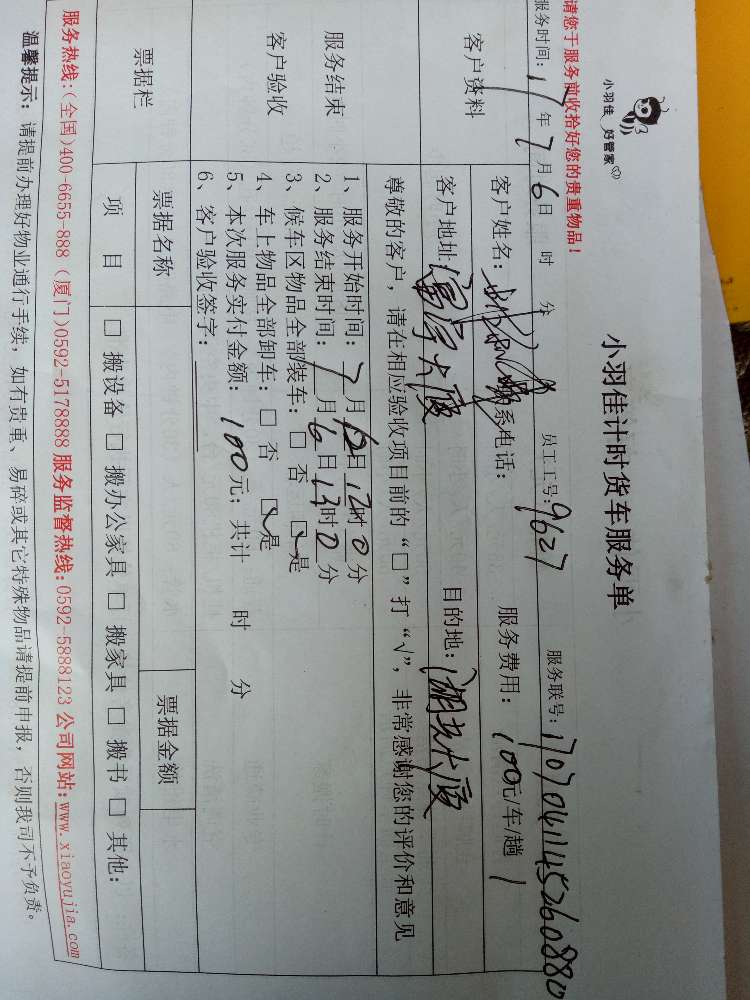 小羽佳 好管家
小羽佳计时货车服务单
请您于服务前收拾好您的贵重物品!
服务时间: 17年7月6日 时 分 员工工号: 9627 服务联号: 170704114526088 0
客户资料 客户姓名: 系电话: 服务费用: 100元/车/趟 1
客户地址: 富宇大厦 目的地: 湖北大厦
尊敬的客户,请在相应验收项目前的“□”打“√”,非常感谢您的评价和意见
服务结束
客户验收
1、服务开始时间: 7月6日12时0分
2、服务结束时间: 7月6日13时0分
3、候车区物品全部装车: □ 否 □ 是
4、车上物品全部卸车: □ 否 □ 是
5、本次服务实付金额: 100元; 共计 时 分
6、客户验收签字:
票据栏 票据名称 票据金额
项 目 □ 搬设备 □ 搬办公家具 □ 搬家具 □ 搬书 □ 其他:
服务热线:(全国)400-6655-888 (厦门)0592-5178888 服务监督热线:0592-5888123 公司网站:www.xiaoyujia.com
温馨提示: 请提前办理好物业通行手续,如有贵重、易碎或其它特殊物品请提前申报,否则我司不予负责。